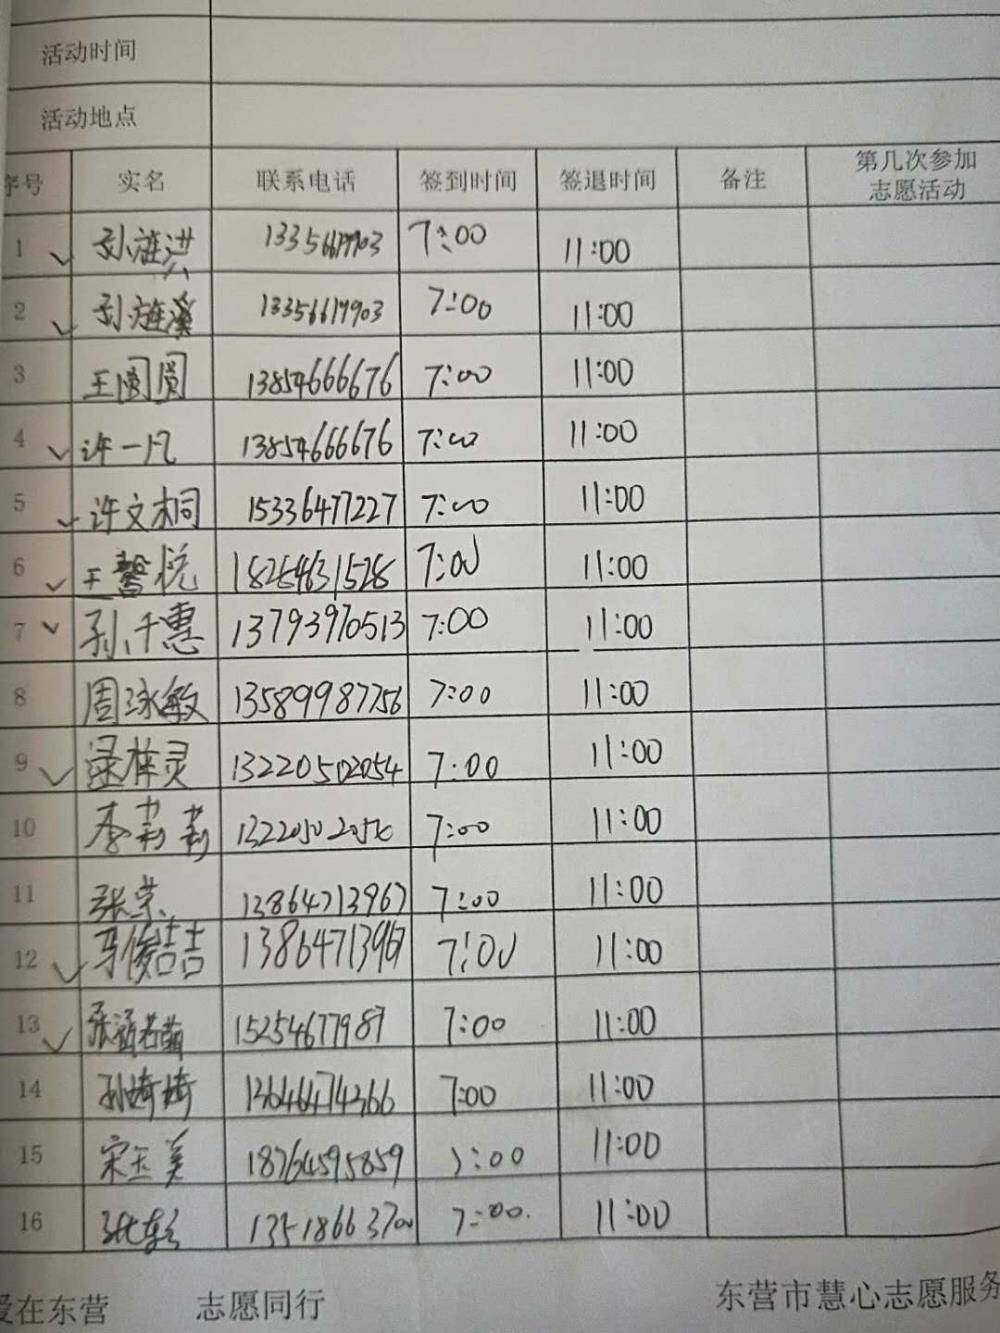 活动时间
活动地点
序号 实名 联系电话 签到时间 签退时间 备注 第几次参加
志愿活动
1 孙涟洪 13356617903 7:00 11:00
2 孙涟溪 13356617903 7:00 11:00
3 王圆圆 13854666676 7:00 11:00
4 许一凡 13854666676 7:00 11:00
5 许文桐 15336477227 7:00 11:00
6 王馨悦 18254631528 7:00 11:00
7 孙千惠 13793970513 7:00 11:00
8 周泳敏 13589987756 7:00 11:00
9 梓灵 13220502054 7:00 11:00
10 李莉莉 7:00 11:00
11 张荣 13864713967 7:00 11:00
12 马俊喆 13864713967 7:00 11:00
13 张涵若萌 15254677987 7:00 11:00
14 孙琦琦 13646474366 7:00 11:00
15 宋玉美 18764595859 7:00 11:00
16 13518663700 7:00 11:00
爱在东营 志愿同行 东营市慧心志愿服务